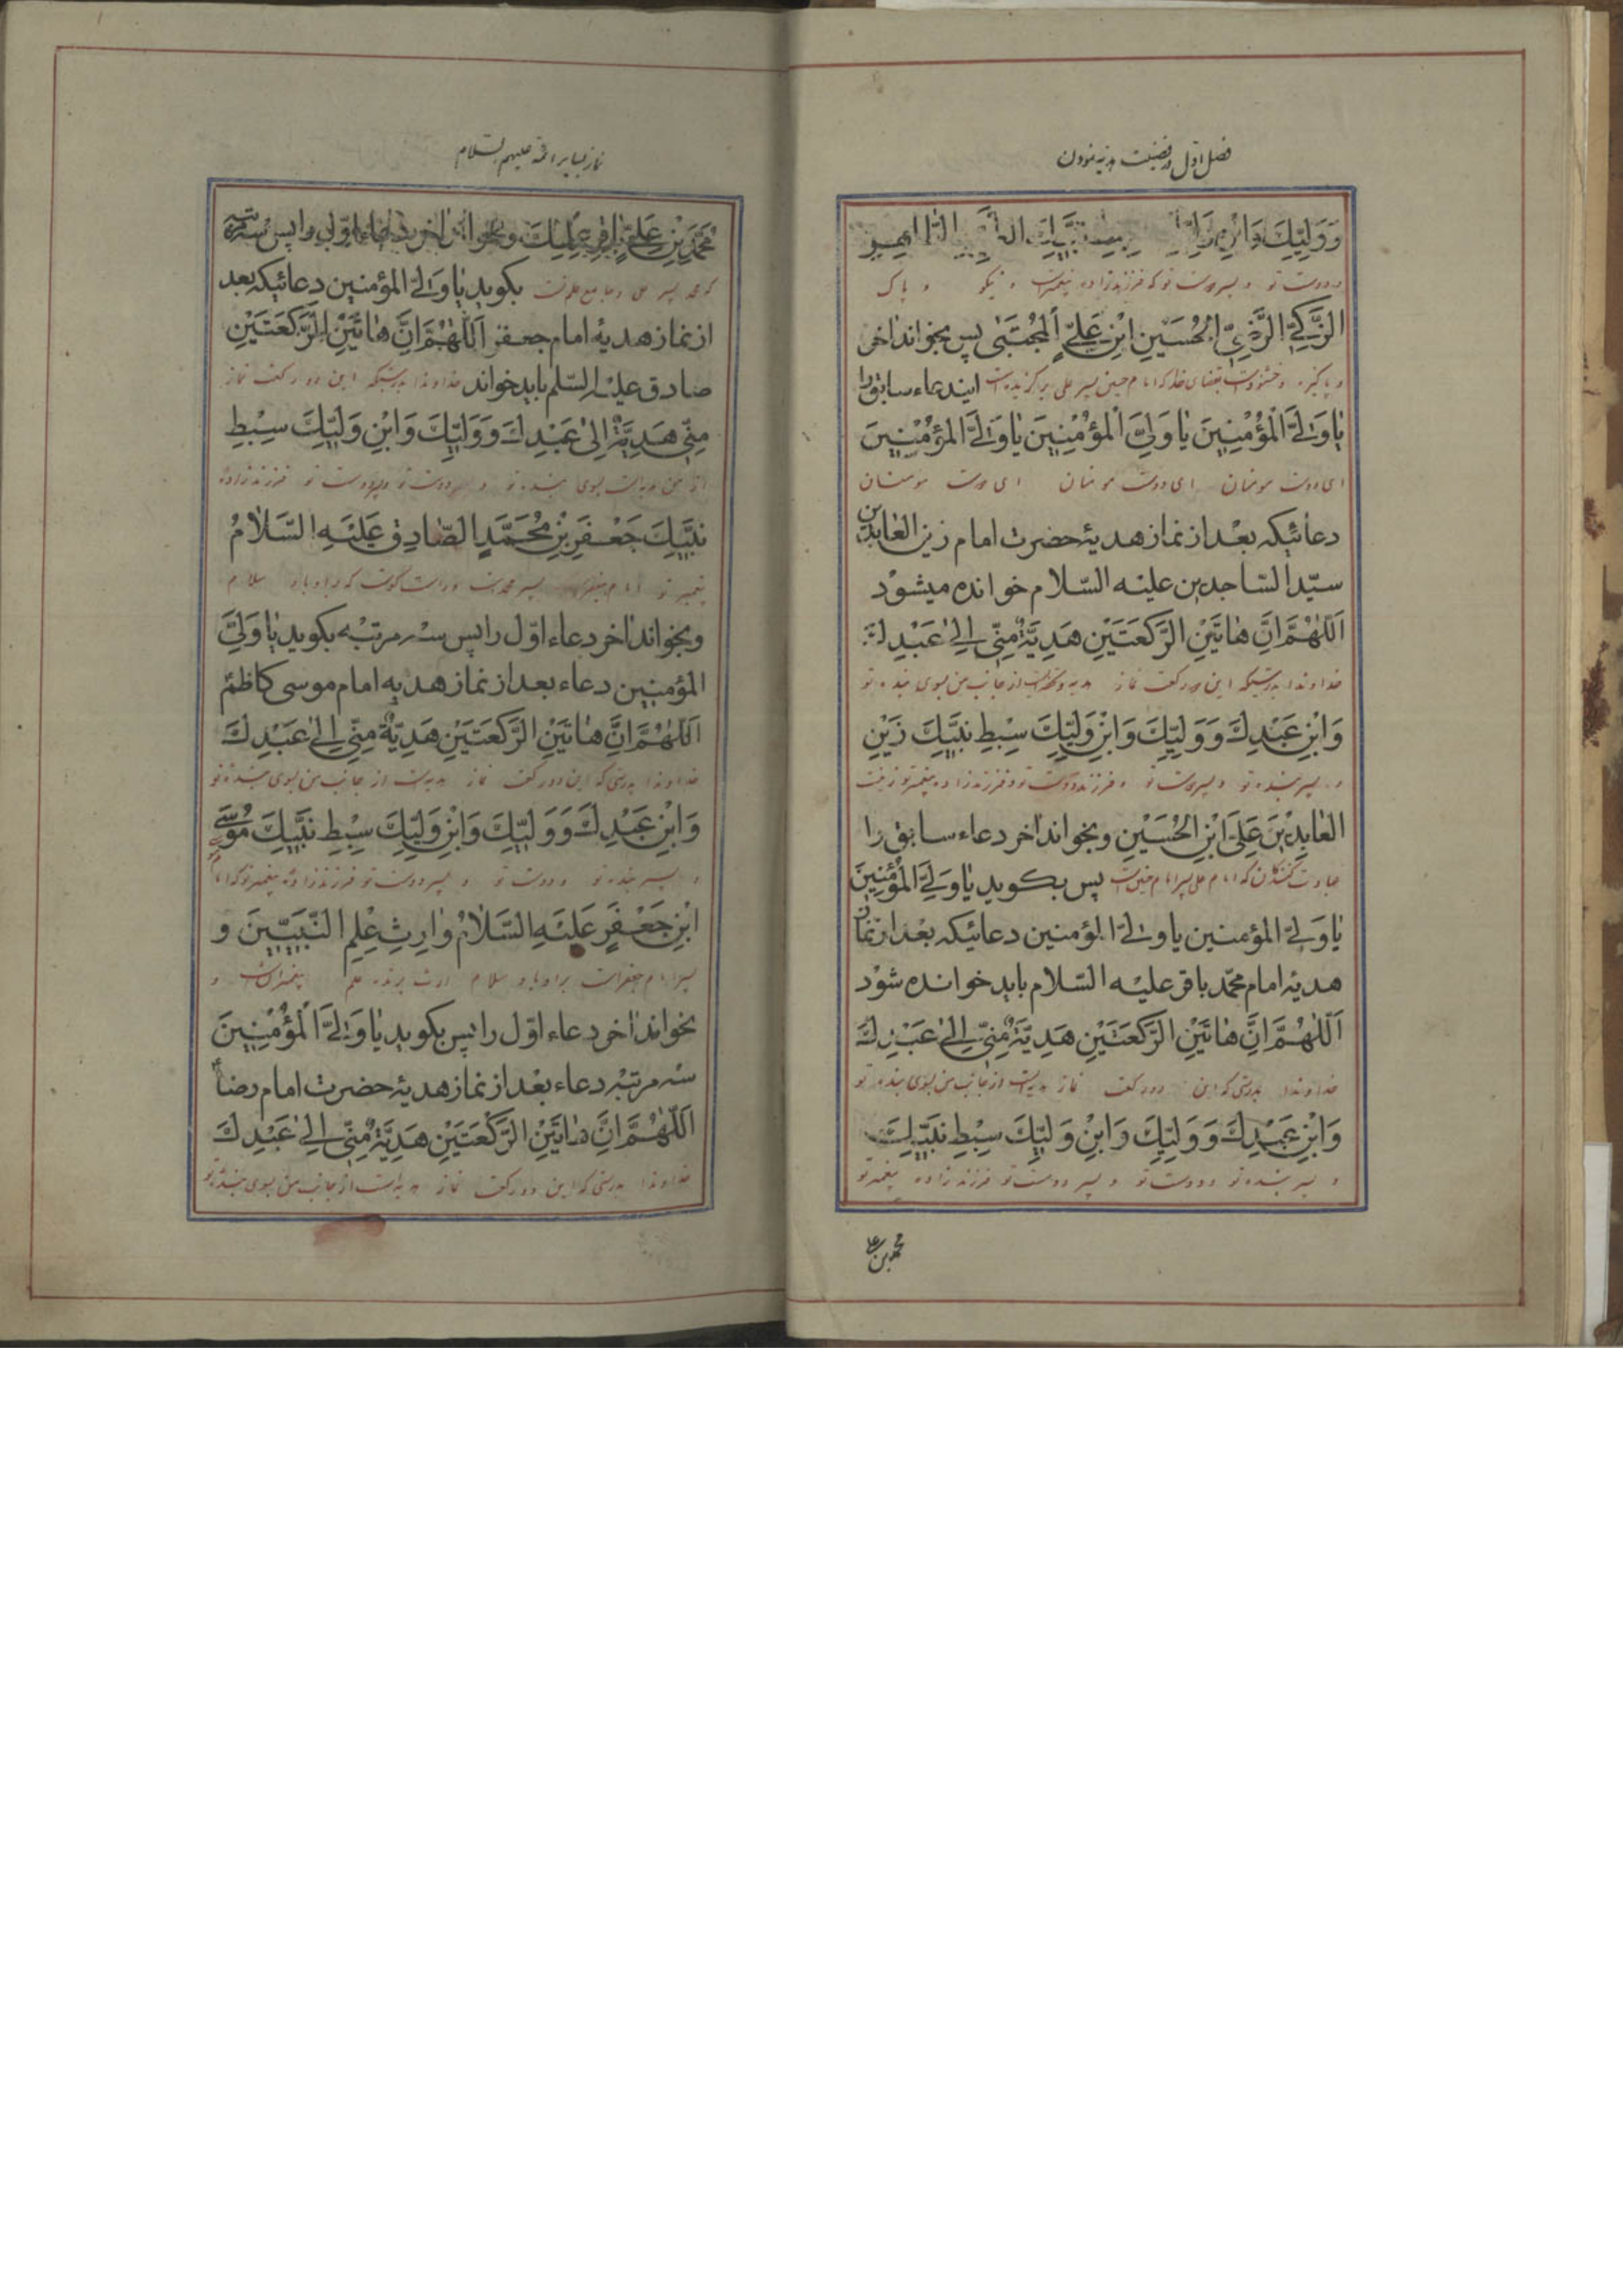 فصل اول در فضیلت هدیه نمودن
وَوَلِیِّكَ وَابْنِ وَلِیِّكَ سِبْطِ نَبِیِّكَ
و دوست تو و پسر دوست تو که فرزندزاده پیغمبر است و نیکو و پاک
الزَّكِیِّ الرَّضِیِّ الْحُسَیْنِ ابْنِ عَلِیٍّ الْمُجْتَبٰی پس بخواند اخر
و پاکیزه و خشنود است که امام حسین پسر علی برگزیده است ایندعاء سابق را
یٰا وَلِیَّ الْمُؤْمِنِینَ یٰا وَلِیَّ الْمُؤْمِنِینَ یٰا وَلِیَّ الْمُؤْمِنِینَ
ای دوست مومنان ای دوست مومنان ای دوست مومنان
دعائیکه بعْد از نماز هدیۀ حضرت امام زین العابدین
سیّد السّاجدین علیْه السّلام خوانده میشوْد
اَللّٰهُمَّ اِنَّ هٰاتَیْنِ الرَّكْعَتَیْنِ هَدِیَّةٌ مِنّٖی اِلٰی عَبْدِكَ
خداوندا بدرستیکه این دو رکعت نماز هدیه از جانب من بسوی بنده تو
وَابْنِ عَبْدِكَ وَوَلِیِّكَ وَابْنِ وَلِیِّكَ سِبْطِ نَبِیِّكَ زَیْنِ
و پسر بنده تو و دوست تو و فرزند دوست تو و فرزندزاده پیغمبر تو زینت
الْعٰابِدِیْنَ عَلِیِّ ابْنِ الْحُسَیْنِ وبخواند اخر دعاء سابق را
عبادت کنندگان که امام علی پسر امام حسین است پس بکوید یٰا وَلِیَّ الْمُؤْمِنِینَ
یٰا وَلِیَّ المؤمنین یا ولیَّ المؤمنین دعائیکه بعْد از نماز
هدیۀ امام محمّد باقر علیْه السّلام باید خوانده شوْد
اَللّٰهُمَّ اِنَّ هٰاتَیْنِ الرَّكْعَتَیْنِ هَدِیَّةٌ مِنّٖی اِلٰی عَبْدِكَ
خداوندا بدرستی که این دو رکعت نماز هدیه است از جانب من بسوی بنده تو
وَابْنِ عَبْدِكَ وَوَلِیِّكَ وَابْنِ وَلِیِّكَ سِبْطِ نَبِیِّكَ
و پسر بنده تو و دوست تو و پسر دوست تو فرزندزاده پیغمبر تو
محمد بن علی
نماز بسایر ائمه علیهم السّلام
مُحَمَّدِ بْنِ عَلِیٍّ وبخواند اخر دعاء اوّل را پس سه مرتبه
که محمد پسر علی بکوید یٰا وَلِیَّ المؤمنین دعائیکه بعد
از نماز هدیۀ امام جعفر اَللّٰهُمَّ اِنَّ هٰاتَیْنِ الرَّكْعَتَیْنِ
صادق علیْه السّلم باید خواند خداوندا بدرستیکه این دو رکعت نماز
مِنّٖی هَدِیَّةٌ اِلٰی عَبْدِكَ وَوَلِیِّكَ وَابْنِ وَلِیِّكَ سِبْطِ
از من هدیه است بسوی بنده تو و دوست تو و پسر دوست تو فرزندزاده
نَبِیِّكَ جَعْفَرِ بْنِ مُحَمَّدٍ الصّٰادِقِ عَلَیْهِ السَّلٰامُ
پیغمبر تو امام جعفر پسر محمد است و راست گو که بر او باد سلام
وبخواند اخر دعاء اوّل را پس سه مرتبْه بکوید یٰا وَلِیَّ
المؤمنین دعاء بعد از نماز هدیه امام موسی کاظم
اَللّٰهُمَّ اِنَّ هٰاتَیْنِ الرَّكْعَتَیْنِ هَدِیَّةٌ مِنّٖی اِلٰی عَبْدِكَ
خداوندا بدرستی که این دو رکعت نماز هدیه است از جانب من بسوی بنده تو
وَابْنِ عَبْدِكَ وَوَلِیِّكَ وَابْنِ وَلِیِّكَ سِبْطِ نَبِیِّكَ مُوسَی
و پسر بنده تو و دوست تو و پسر دوست تو فرزندزاده پیغمبر تو که امام
ابْنِ جَعْفَرٍ عَلَیْهِ السَّلٰامُ وٰارِثِ عِلْمِ النَّبِیِّینَ و
پسر امام جعفر است بر او باد سلام ارث برنده علم پیغمبران است و
بخواند اخر دعاء اوّل را پس بکوید یٰا وَلِیَّ الْمُؤْمِنِینَ
سه مرتبْه دعاء بعْد از نماز هدیۀ حضرت امام رضا
اَللّٰهُمَّ اِنَّ هٰاتَیْنِ الرَّكْعَتَیْنِ هَدِیَّةٌ مِنّٖی اِلٰی عَبْدِكَ
خداوندا بدرستی که این دو رکعت نماز هدیه است از جانب من بسوی بنده تو